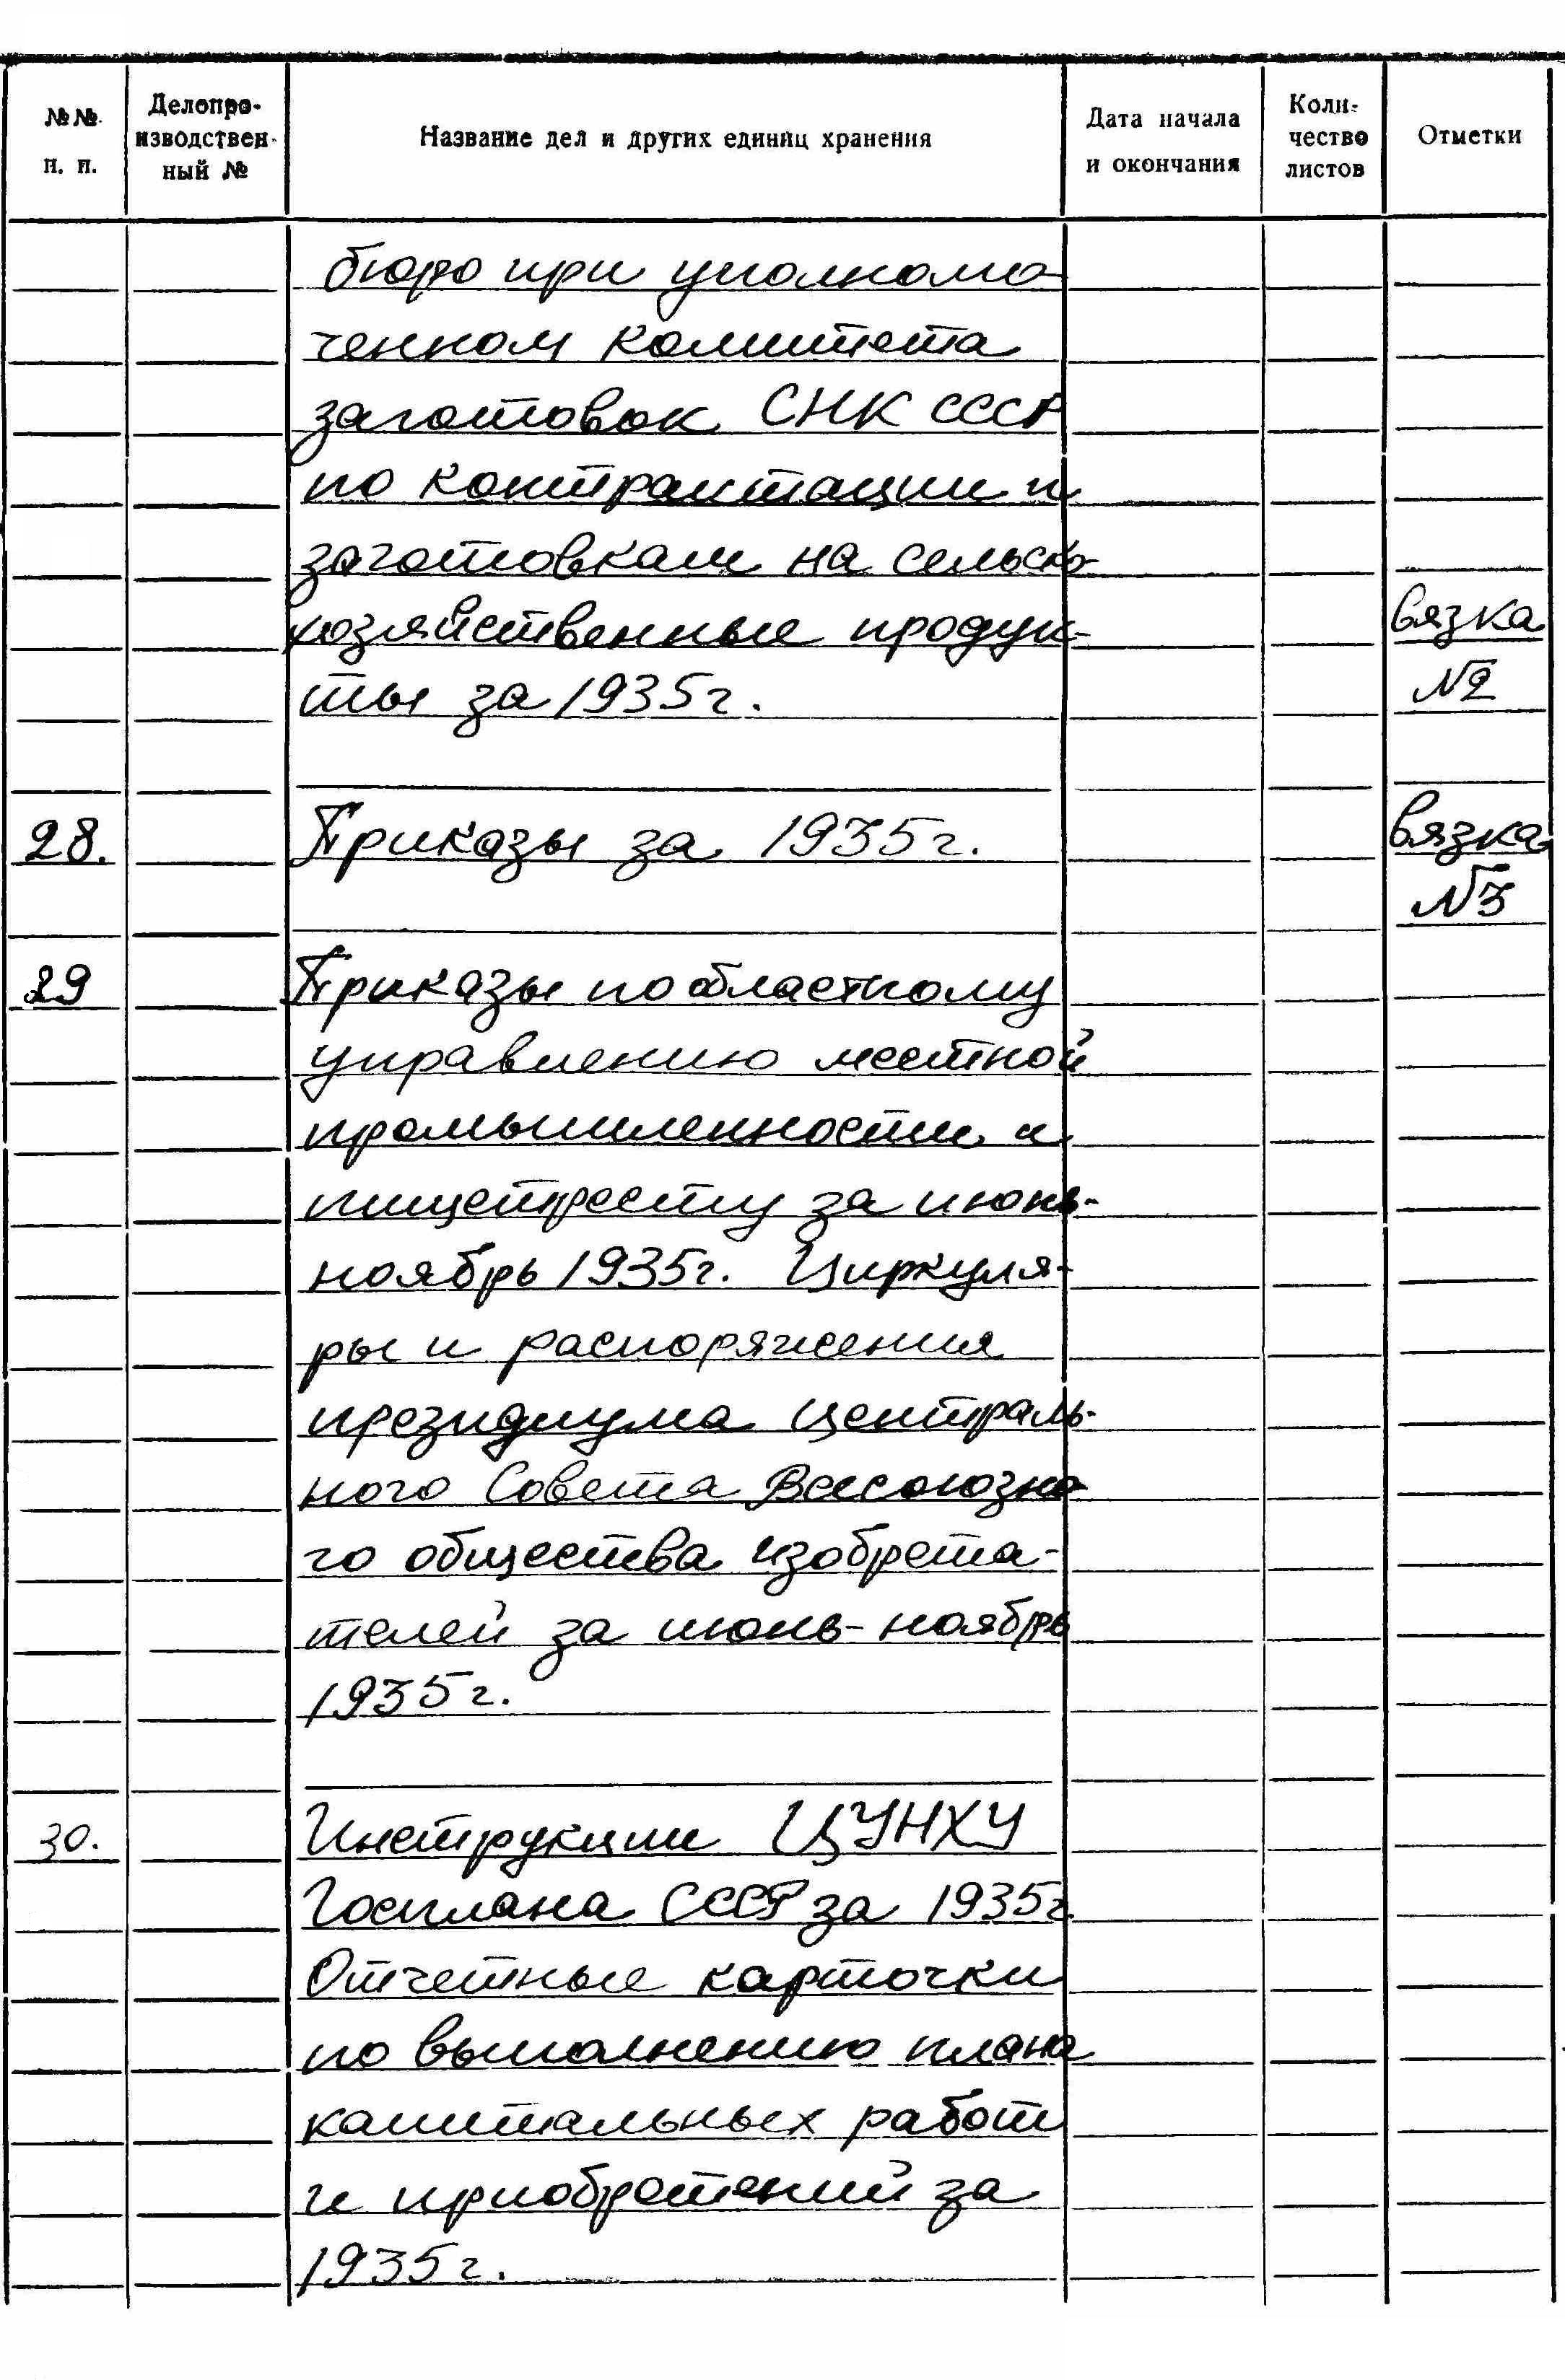 №№ п. п.
Делопро-
изводствен-
ный №
Название дел и других единиц хранения
Дата начала
и окончания
Коли-
чество
листов
Отметки
бюро при уполномо-
ченном комитета
заготовок СНК СССР
по контрактации и
заготовкам на сельско-
хозяйственные продук- вязка
ты за 1935г. №2
28. Приказы за 1935г. вязка
№3
29 Приказы по областному
управлению местной
промышленности и
пищетресту за июнь-
ноябрь 1935г. Циркуля-
ры и распоряжения
президиума Централь-
ного Совета Всесоюзно-
го общества изобрета-
телей за июнь-ноябрь
1935г.
30. Инструкции ЦУНХУ
Госплана СССР за 1935г.
Отчетные карточки
по выполнению плана
капитальных работ
и приобретений за
1935г.